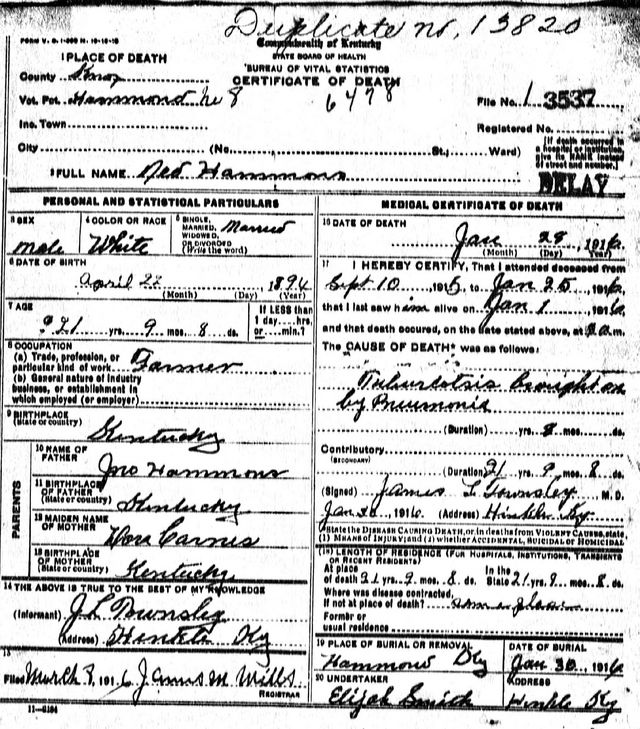 Duplicate no. 13820
FORM V. S. 1
Commonwealth of Kentucky
STATE BOARD OF HEALTH
BUREAU OF VITAL STATISTICS
CERTIFICATE OF DEATH
1 PLACE OF DEATH
County Knox
Vot. Pct. Hammond No 8
6478
File No. 1 3537
Inc. Town
Registered No.
City (No. St.; Ward)
[If death occurred in a hospital or institution give its NAME instead of street and number.]
2 FULL NAME Ned Hammons
DELAY
PERSONAL AND STATISTICAL PARTICULARS
3 SEX
male
4 COLOR OR RACE
White
5 SINGLE, MARRIED, WIDOWED, OR DIVORCED
(Write the word)
Married
6 DATE OF BIRTH
April 22 1894
(Month) (Day) (Year)
7 AGE
21 yrs. 9 mos. 8 ds.
If LESS than 1 day....hrs. or....min.?
8 OCCUPATION
(a) Trade, profession, or particular kind of work Farmer
(b) General nature of industry business, or establishment in which employed (or employer)
9 BIRTHPLACE
(State or country)
Kentucky
PARENTS
10 NAME OF FATHER
Jno Hammons
11 BIRTHPLACE OF FATHER
(State or country)
Kentucky
12 MAIDEN NAME OF MOTHER
Carnes
13 BIRTHPLACE OF MOTHER
(State or country)
Kentucky
14 THE ABOVE IS TRUE TO THE BEST OF MY KNOWLEDGE
(Informant) J. L. Townsley
(Address) Hinkle Ky
15
Filed March 8, 1916 James M Mills
REGISTRAR
MEDICAL CERTIFICATE OF DEATH
16 DATE OF DEATH
Jan 28, 1916
(Month) (Day) (Year)
17 I HEREBY CERTIFY, That I attended deceased from
Sept 10, 1915, to Jan 25, 1916,
that I last saw him alive on Jan 1, 1916,
and that death occured, on the date stated above, at m.
The CAUSE OF DEATH* was as follows:
Brought on
by Pneumonia
(Duration) yrs. 8 mos. ds.
Contributory
(SECONDARY)
(Duration) 21 yrs. 9 mos. 8 ds.
(Signed) James L Townsley M. D.
Jan 30, 1916 (Address) Hinkle Ky
*State the DISEASE CAUSING DEATH, or, in deaths from VIOLENT CAUSES, state, (1) MEANS OF INJURY; and (2) whether ACCIDENTAL, SUICIDAL OR HOMICIDAL
18 LENGTH OF RESIDENCE (FOR HOSPITALS, INSTITUTIONS, TRANSIENTS OR RECENT RESIDENTS)
At place of death 21 yrs. 9 mos. 8 ds. In the State 21 yrs. 9 mos. 8 ds.
Where was disease contracted,
If not at place of death?
Former or
usual residence
19 PLACE OF BURIAL OR REMOVAL
Hammond Ky
DATE OF BURIAL
Jan 30, 1916
20 UNDERTAKER
Elijah Smith
ADDRESS
Hinkle Ky